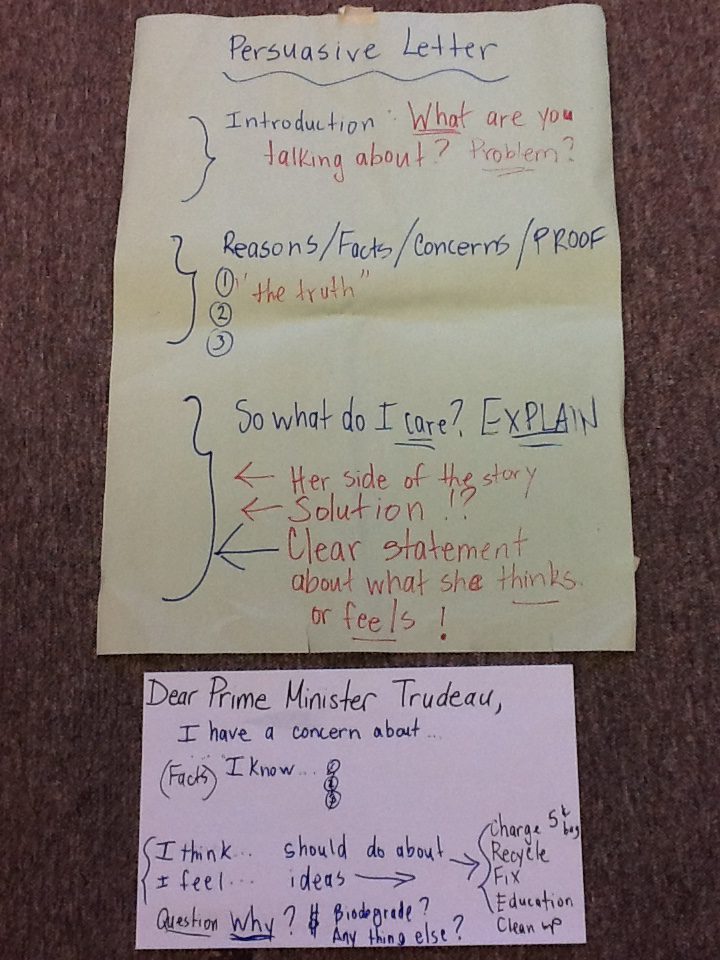 Persuasive Letter
Introduction: What are you
talking about? Problem?
Reasons/Facts/Concerns/PROOF
① "the truth"
②
③
So what do I care? EXPLAIN
← Her side of the story
← Solution !?
← Clear statement
about what she thinks
or feels!
Dear Prime Minister Trudeau,
I have a concern about...
(Facts) I know... ① ② ③
I think... should do about →
I feel... ideas →
Charge 5¢ bag
Recycle
Fix
Education
Clean up
Question Why? Biodegrade?
Any thing else?